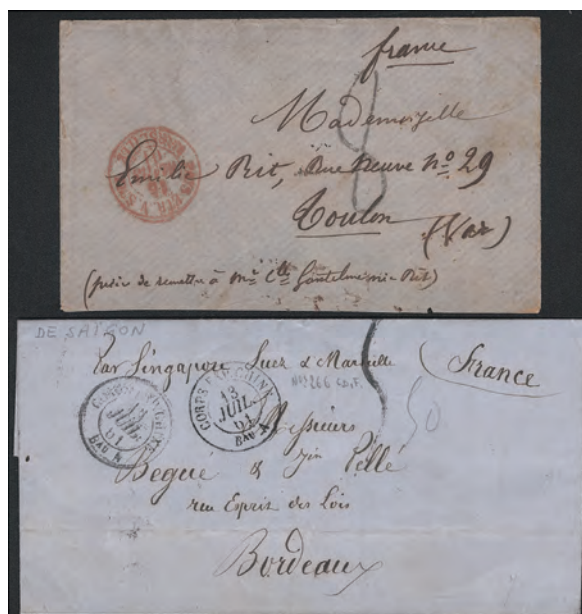 france
Mademoiselle
Emilie Rit, Rue Neuve nº 29
Toulon
(Var)
(prière de remettre à Mme Clle née Rit)
DE SAÏGON
Par Singapour Suez & Marseille
France
CORPS EXP. CHINE
13
JUIL.
61
BAU A
CORPS EXP. CHINE
13
JUIL.
61
BAU A
50
Messieurs
Begué & Jin Pellé
rue Esprit des Lois
Bordeaux